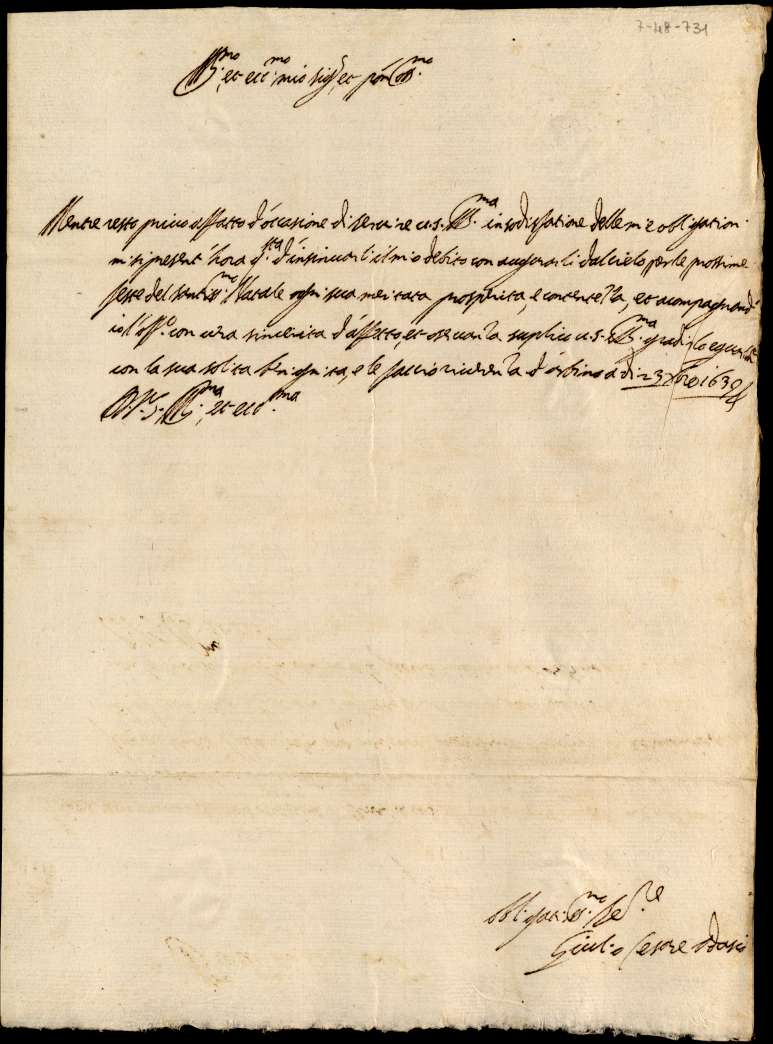 7-48-731
Ill.mo et ecc.mo mio sig.r et pron Oss.mo
Mentre resto privo affatto d'occasione di servire a V.S. Ill.ma in sodisfatione delle mie obligation
mi si present'hora q.sta d'insinuarli il mio debito con augurarli dal cielo per le prossime
feste del santiss.mo Natale ogni sua meritata prosperita, e contentezza, et acompagnand
io l'off.o con vera sincerita d'affetto et osservanza suplico V.S. Ill.ma gradi
con la sua solita benignita, e le faccio riverenza d'Urbino adi 23 Xbre 1639
D V.S. Ill.ma et ecc.ma
Obligatiss.mo Se.re
Giulio Cesare